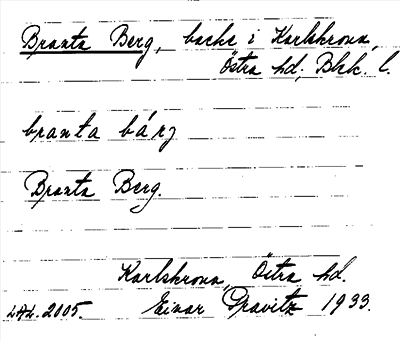 Branta Berg, backe i Karlskrona,
Östra hd, Blek. l.
branta bárj
Branta Berg.
Karlskrona, Östra hd.
LAL. 2005. Einar Pravitz 1933.